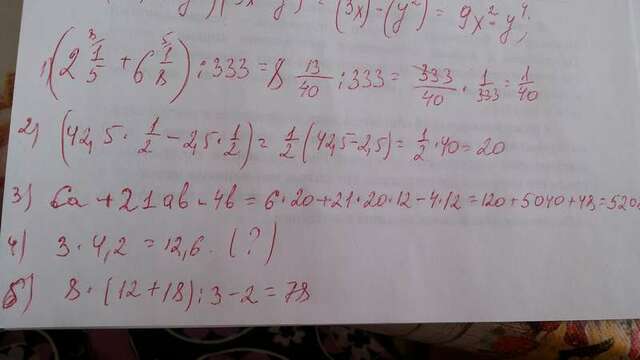 (3x)² - (y²) = 9x² - y⁴;
1) (2 1/5 + 6 1/8) : 333 = 8 13/40 : 333 = 333/40 · 1/333 = 1/40
2) (42,5 · 1/2 - 2,5 · 1/2) = 1/2 (42,5 - 2,5) = 1/2 · 40 = 20
3) 6a + 21ab - 4b = 6 · 20 + 21 · 20 · 12 - 4 · 12 = 120 + 5040 + 48 = 5208
4) 3 · 4,2 = 12,6. (?)
5) 8 · (12 + 18) : 3 - 2 = 78